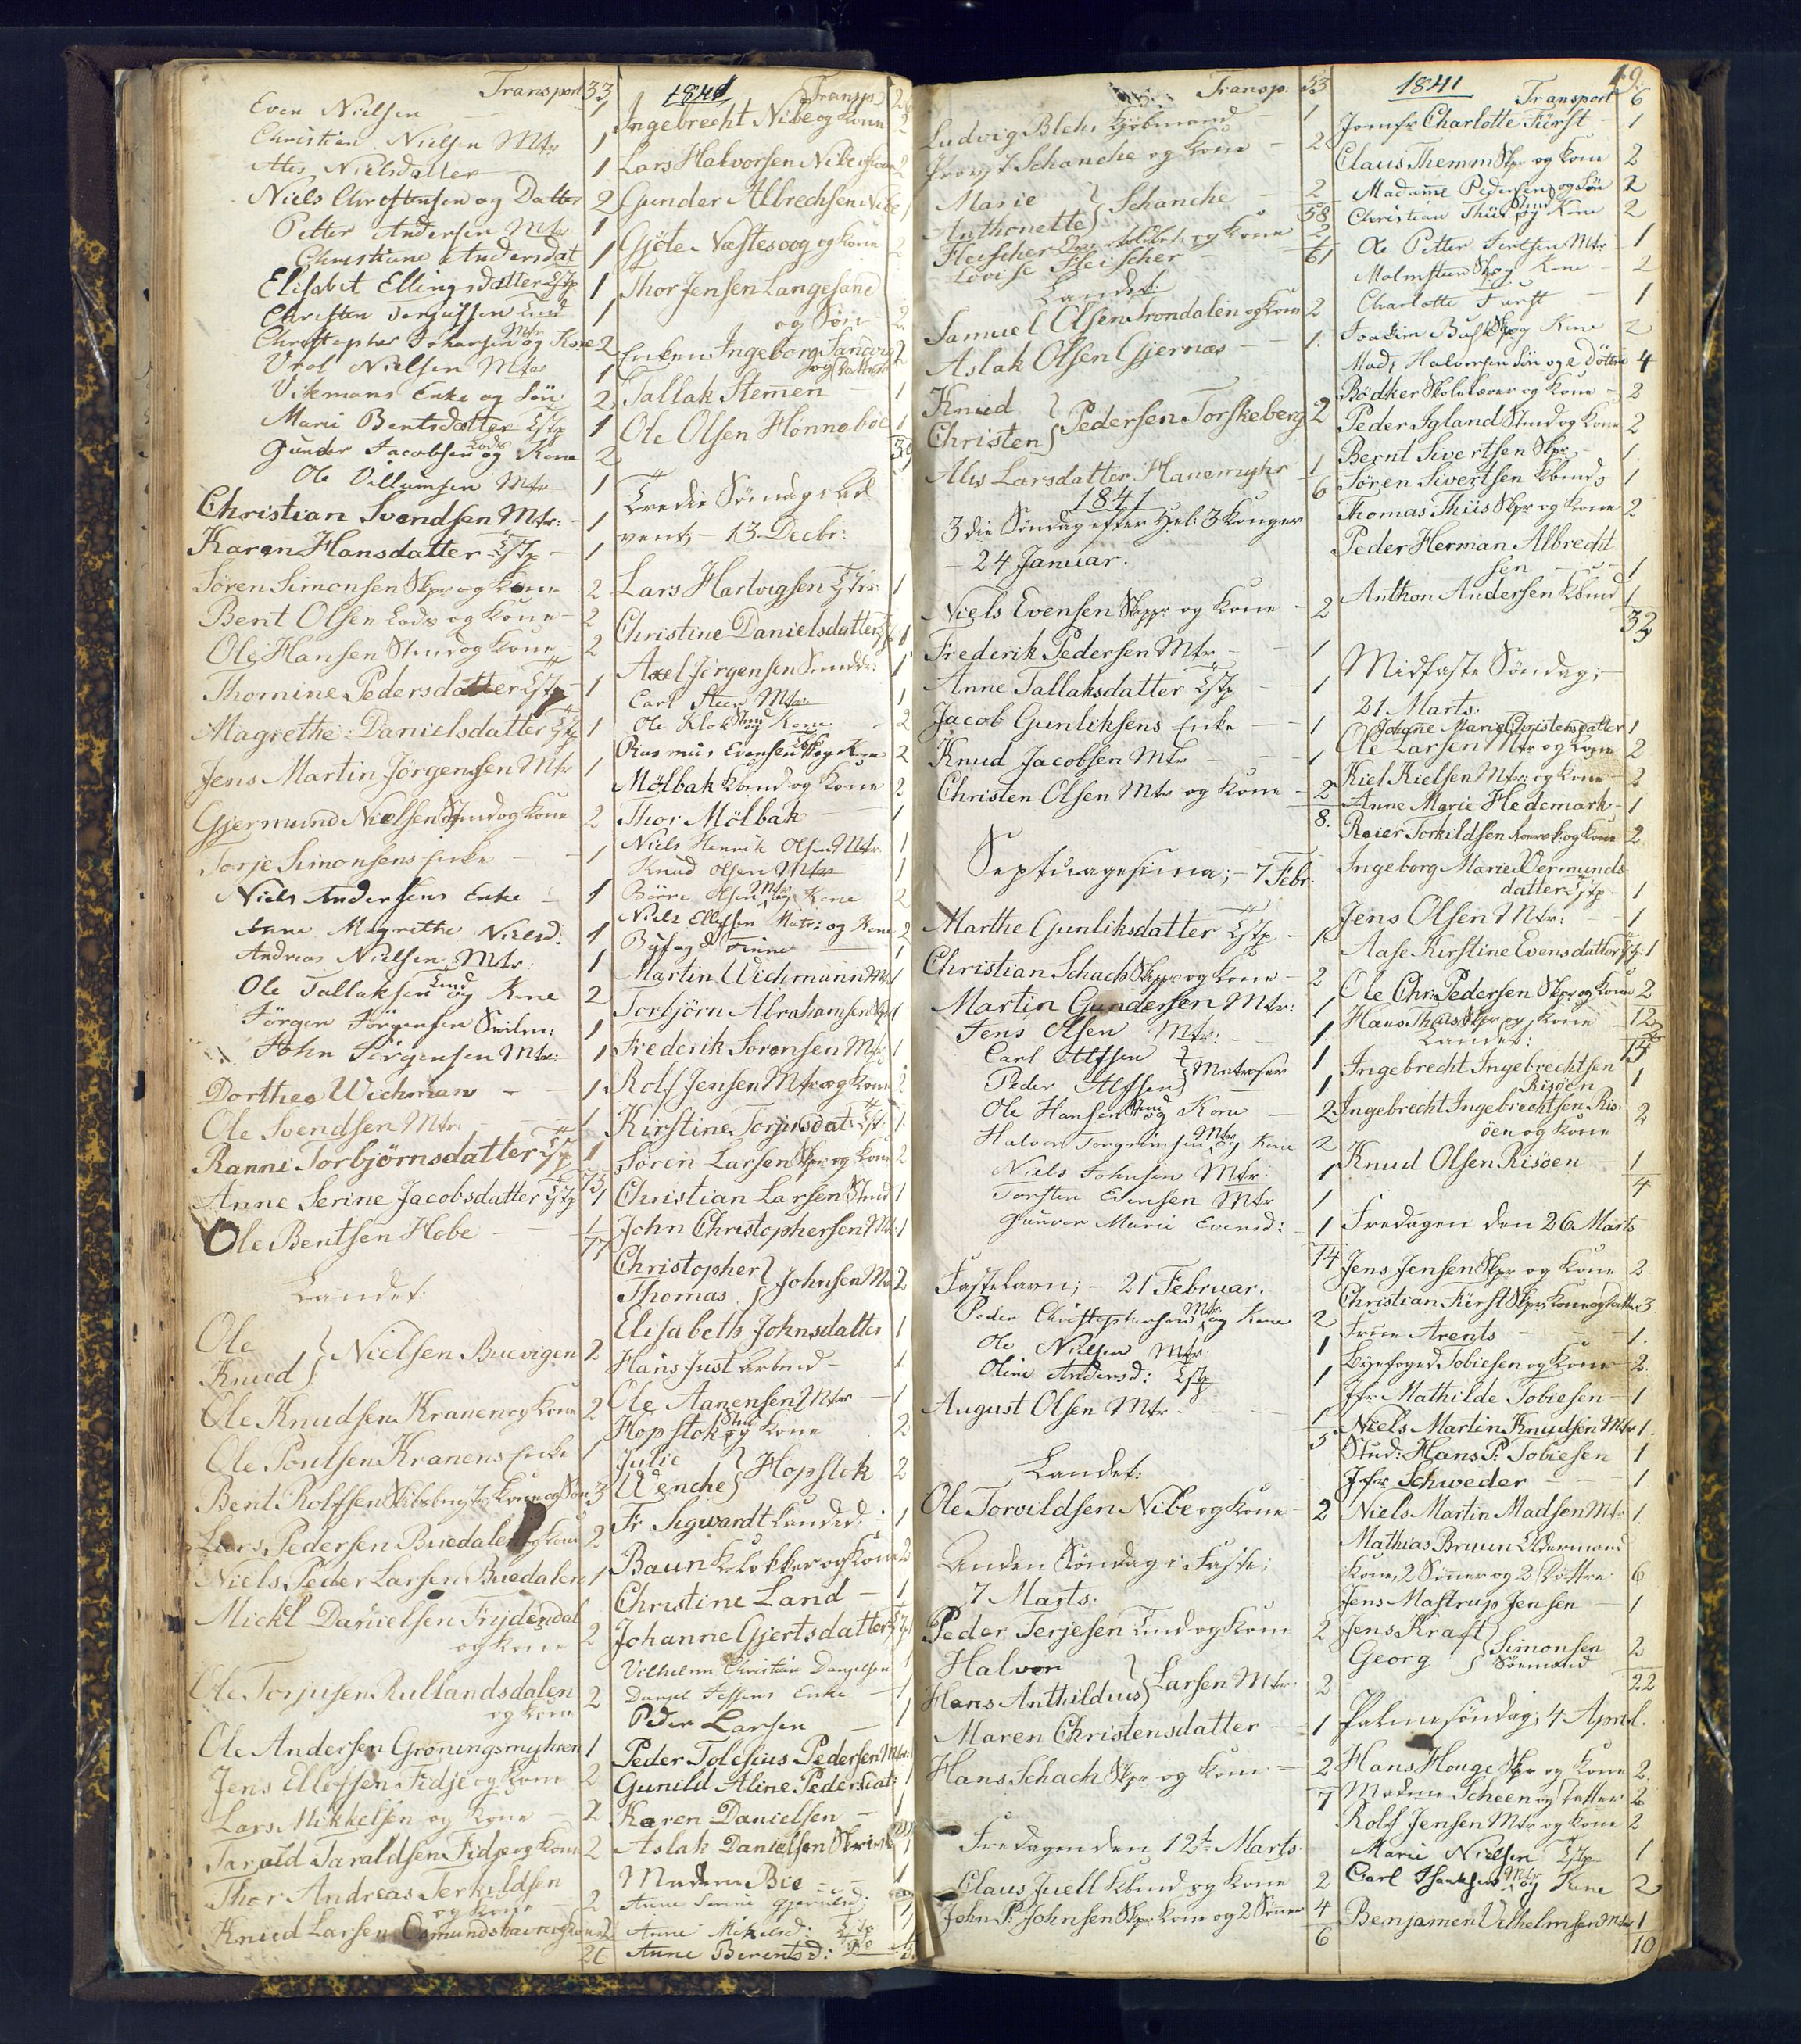 Transport 33
Even Nielsen 1
Christian Nielsen Mtr 1
Nielsdatter 1
Niels Christensen og Datter 2
Petter Andersen Mtr 1
Christiane Andersdat 1
Elisabet Ellingsdatter Tjstp 1
Christen Terjussen Tmd 1
Christopher Johansen Mtr og Kone 2
Nielsen Mtr 1
Vikmans Enke og Søn 2
Marie Bentsdatter Tjstp 1
Gunder Jacobsen Lods og Kone 2
Ole Villumsen Mtr 1
Christian Svendsen Mtr: 1
Karen Hansdatter Tjstp 1
Søren Simonsen Skpr og Kone 2
Bent Olsen Lods og Kone 2
Ole Hansen Stmd og Kone 2
Thomine Pedersdatter Tjstp 1
Magrethe Danielsdatter Tjstp 1
Jens Martin Jörgensen Mtr 1
Gjermund Nielsen Stmd og Kone 2
Torje Simonsens Enke 1
Niels Andersens Enke 1
Anne Magrethe Nielsd. 1
Andreas Nielsen Mtr. 1
Ole Tallaksen Tmd og Kone 2
Jörgen Jörgensen Seilm: 1
John Jörgensen Mtr: 1
Dorthea Wichman 1
Ole Svendsen Mtr: 1
Ranni Torbjörnsdatter Tjstp 1
Anne Serine Jacobsdatter Tjstp
Ole Bentsen Hobe 1
77
Landet:
Ole } Nielsen Buevigen 2
Knud
Ole Knudsen Kranen og Kone 2
Ole Poulsen Kranens Enke 1
Bent Rolfsen Skibsbygr, Kone og Søn 3
Lars Pedersen Buedalen og Kone 2
Niels Peder Larsen Buedalen 1
Mickl Danielsen Frydendal
og Kone 2
Ole Torjusen Rullandsdalen
og Kone 2
Ole Andersen Gröningsmyhren 1
Jens Ellefsen Fidje og Kone 2
Lars Mikkelsen og Kone 2
Tarald Taraldsen Fidje og Kone 2
Thor Andreas Terkildsen
og Kone 2
Knud Larsen og Kone 2
26
1841
Transp 26
Ingebrecht Nibe og Kone 2
Lars Halvorsen Nibe og Kone 2
Gunder Albrechsen Nibe 1
Gjöte Næstesoog og Kone 2
Thor Jensen Langesand
og Søn 2
Enken Ingeborg Sandvig
og Datter 2
Tallak Stemen 1
Ole Olsen Hönneböe 1
39
Tredie Søndag i Ad
vent, - 13. Decbr:
Lars Hartvigsen 1
Christine Danielsdatter 1
Axel Jörgensen 1
Carl Steen Mtr: 1
Ole Klok Stmd og Kone 2
Rasmus Evensen og Kone 2
Mölbak Kbmd og Kone 2
Thor Mölbak 1
Niels Henrik Olsen Mtr 1
Knud Olsen Mtr 1
Börre Olsen Mtr og Kone 2
Niels Ellefsen Matr: og Kone 2
Byfogd Finne 1
Martin Wichmann Mtr 1
Torbjörn Abrahamsen 1
Frederik Sörensen Mtr: 1
Rolf Jensen Mtr og Kone 2
Kirstine Torjusdat: Tjst: 1
Søren Larsen Skpr og Kone 2
Christian Larsen Stmd 1
John Christophersen Mtr 1
Christopher } Johnsen Mtr 2
Thomas
Elisabeth Johnsdatter 1
Hans Just Arbmd 1
Ole Aanensen Mtr 1
Hopstok Stmd og Kone 2
Julie } Hopstok 2
Wenche
Fr Sigwardt 1
Baun Klokker og Kone 2
Christine Land 1
Johanne Gjertsdatter
Vilhelm Christian Danielsen 1
Daniel Jessens Enke 1
Peder Larsen 1
Peder Tolesius Pedersen Mtr
Gunild Aline Pedersdat: 1
Karen Danielsen 1
Aslak Danielsen 1
Madme Bie 1
Anne Serine 1
Anne Mikkelsd: Tjstp 1
Anne Berentsd:
Transp. 53
Ludvig Blehr Kjöbmand 1
Provst Schanche og Kone 2
Marie } Schanche 2
Anthonette
58
Fleischer og Kone 2
Lovise Fleischer 1
61
Landet:
Samuel Olsen Trondalen og Kone 2
Aslak Olsen Gjernæs 1.
Knud } Pedersen Torskeberg 2
Christen
Alis Larsdatter Hanemyhr 1
6
1841
3die Søndag efter Hel: 3 Konger
- 24 Januar.
Niels Evensen Skpr og Kone 2
Frederik Pedersen Mtr 1
Anne Tallaksdatter Tjstp 1
Jacob Gunliksens Enke 1
Knud Jacobsen Mtr 1
Christen Olsen Mtr og Kone 2
8.
Septuagesima; - 7 Febr.
Marthe Gunliksdatter Tjstp 1
Christian Schach Skpr og Kone 2
Martin Gundersen Mtr: 1
Jens Olsen Mtr: 1
Carl Alfsen } Matroser 1
Peder Alfsen 1
Ole Hansen Stmd og Kone 2
Halvor Torgrimsen Mtr og Kone 2
Niels Johnsen Mtr 1
Torsten Evensen Mtr 1
Gunvor Marie Evensd: 1
14
Fastelavn; - 21 Februar.
Peder Christophersen Mtr og Kone 2
Ole Nielsen Mtr: 1
Oline Andersd: Tjstp 1
August Olsen Mtr 1
5
Landet:
Ole Torvildsen Nibe og Kone 2
Anden Søndag i Faste;
7 Marts.
Peder Terjesen Tmd og Kone 2
Halvor } Larsen Mtr: 2
Hans Anthildius
Maren Christensdatter 1
Hans Schach Skpr og Kone 2
7
Fredagen den 12te Marts
Claus Juell Kbmd og Kone 2
John P. Johnsen Skpr Kone og 2 Sönner 4
6
19.
1841
Transport 6
Jomfr Charlotte Fürst 1
Claus Themm Skpr og Kone 2
Madame Pedersen og Søn 2
Christian Thiis Stmd og Kone 2
Ole Petter Mtr 1
Malmsteen Skpr og Kone 2
Charlotte Furst 1
Joachim Busk Skpr og Kone 2
Mads Halvorsen Søn og 2 Döttre 4
Bödker Skolelærer og Kone 2
Peder Igland Stmd og Kone 2
Bernt Sivertsen Skpr 1
Søren Sivertsen Kbmd 1
Thomas Thiis Skpr og Kone 2
Peder Herman Albrecht
sen 1
Anthon Andersen Kbmd 1
32
Midfaste Søndag;
21 Marts.
Johanne Marie Christensdatter 1
Ole Larsen Mtr og Kone 2
Kiel Kielsen Mtr: og Kone 2
Anne Marie Hedemark 1
Reier Torkildsen og Kone 2
Ingeborg Marie Vermunds
datter Tjstp 1
Jens Olsen Mtr: 1
Aase Kirstine Evensdatter Tj: 1
Ole Chr: Pedersen Skpr og Kone 2
Hans Thiis Skpr og Kone
Landet:
Ingebrecht Ingebrechtsen
Risöen 1
Ingebrecht Ingebrechtsen Ris
öen og Kone 2
Knud Olsen Risöen 1
4
Fredagen den 26 Marts
Jens Jensen Skpr og Kone 2
Christian Fürst Skpr, Kone og Datter 3
Frue Arents 1.
Byefoged Tobiesen og Kone 2.
Jfr Mathilde Tobiesen 1
Niels Martin Knudsen Mtr 1.
Stud: Hans P. Tobiesen 1
Jfr Schweder 1
Niels Martin Madsen Mtr: 1.
Mathias Bruun Oldermand
Kone, 2 Sönner og 2 Döttre 6
Jens Mastrup Jensen 1
Jens Kraft } Simonsen 2
Georg Sömand
22
Palmesöndag; 4 April.
Hans Houge Skpr og Kone 2.
Madme Scheen og Datter 2
Rolf Jensen Mtr og Kone 2
Marie Nielsen Tjstp 1
Carl Isaksen Mtr og Kone 2
Benjamen Vilhelmsen Mtr 1
10